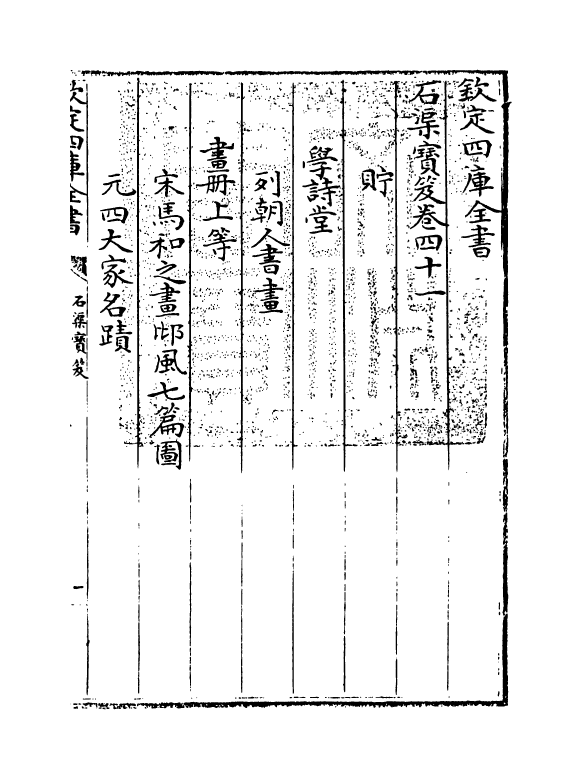 欽定四庫全書
石渠寶笈卷四十一
貯
學詩堂
列朝人書畫
畫册上等
宋馬和之畫邶風七篇圖
元四大家名蹟
欽定四庫全書
石渠寶笈
一